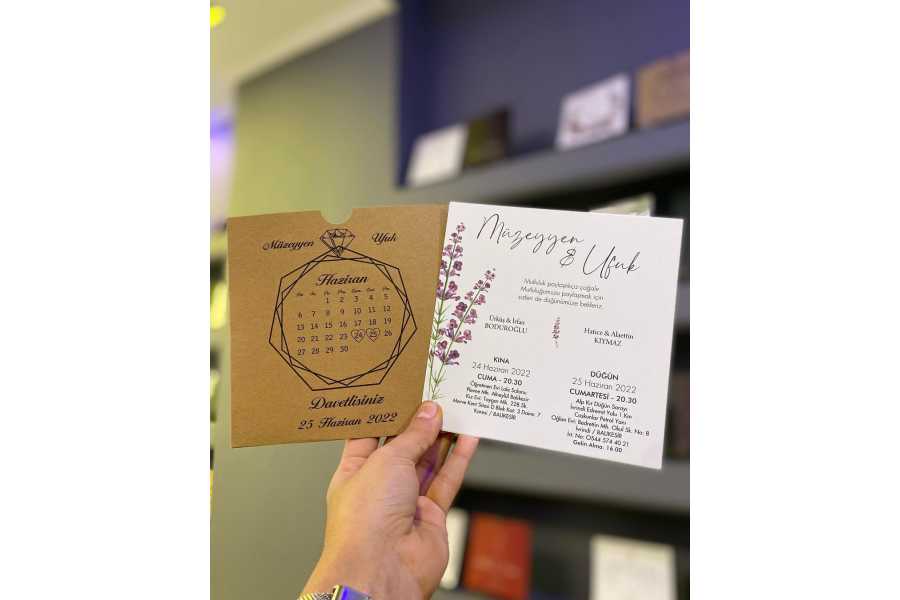 Müzeyyen Ufuk
Haziran
1 2 3 4 5
6 7 8 9 10 11 12
13 14 15 16 17 18 19
20 21 22 23 24 25 26
27 28 29 30
Davetlisiniz
25 Haziran 2022
Müzeyyen
& Ufuk
Mutluluk paylaşıldıkça çoğalır
Mutluluğumuzu paylaşmak için
sizleri de düğünümüze bekleriz.
Ülküş & İrfan
BODUROĞLU
Hatice & Alaettin
KIYMAZ
KINA
24 Haziran 2022
CUMA - 20.30
Öğretmen Evi Lale Salonu
Plevne Mh. Altıeylül Balıkesir
Kız Evi: Toygar Mh. 228 Sk.
Merve Kent Sitesi D Blok Kat: 3 Daire: 7
Karesi / BALIKESİR
DÜĞÜN
25 Haziran 2022
CUMARTESİ - 20.30
Alp Kır Düğün Sarayı
İvrindi Edremit Yolu 1 Km
Coşkunlar Petrol Yanı
Oğlan Evi: Bedrettin Mh. Okul Sk. No: 8
İvrindi / BALIKESİR
İrt. No: 0544 574 40 21
Gelin Alma: 16.00